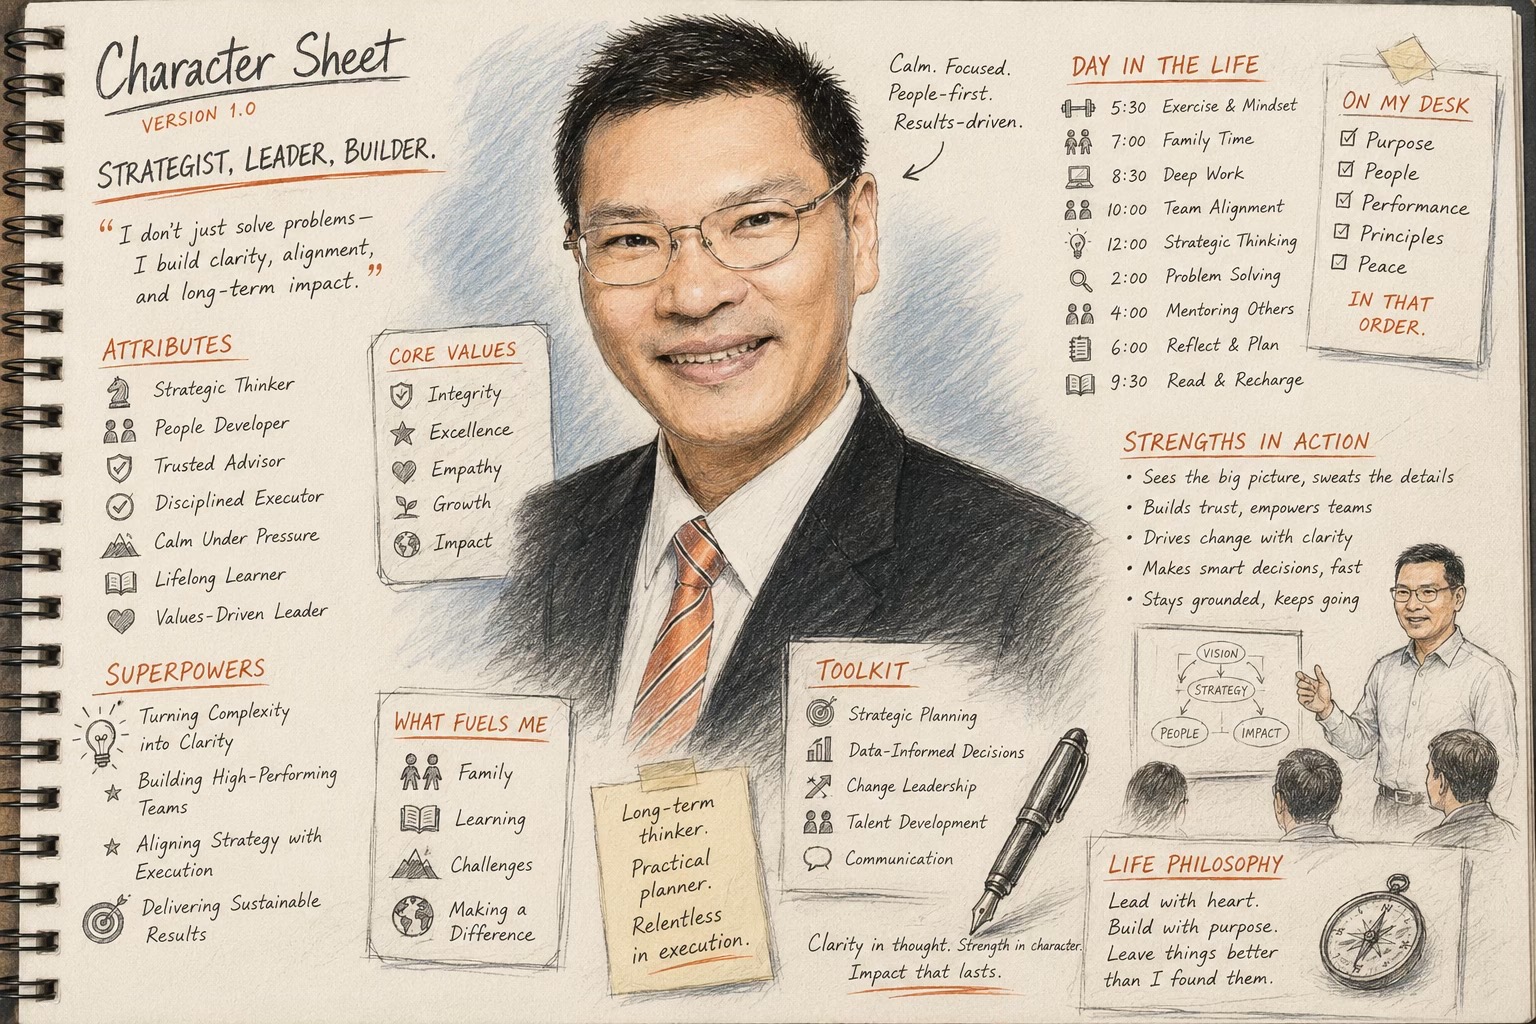 Character Sheet
VERSION 1.0
STRATEGIST, LEADER, BUILDER.
“I don't just solve problems—
I build clarity, alignment,
and long-term impact.”
ATTRIBUTES
Strategic Thinker
People Developer
Trusted Advisor
Disciplined Executor
Calm Under Pressure
Lifelong Learner
Values-Driven Leader
SUPERPOWERS
Turning Complexity
into Clarity
Building High-Performing
Teams
Aligning Strategy with
Execution
Delivering Sustainable
Results
CORE VALUES
Integrity
Excellence
Empathy
Growth
Impact
WHAT FUELS ME
Family
Learning
Challenges
Making a
Difference
Long-term
thinker.
Practical
planner.
Relentless
in execution.
Calm. Focused.
People-first.
Results-driven.
TOOLKIT
Strategic Planning
Data-Informed Decisions
Change Leadership
Talent Development
Communication
Clarity in thought. Strength in character.
Impact that lasts.
DAY IN THE LIFE
5:30 Exercise & Mindset
7:00 Family Time
8:30 Deep Work
10:00 Team Alignment
12:00 Strategic Thinking
2:00 Problem Solving
4:00 Mentoring Others
6:00 Reflect & Plan
9:30 Read & Recharge
ON MY DESK
Purpose
People
Performance
Principles
Peace
IN THAT
ORDER.
STRENGTHS IN ACTION
• Sees the big picture, sweats the details
• Builds trust, empowers teams
• Drives change with clarity
• Makes smart decisions, fast
• Stays grounded, keeps going
VISION
STRATEGY
PEOPLE
IMPACT
LIFE PHILOSOPHY
Lead with heart.
Build with purpose.
Leave things better
than I found them.